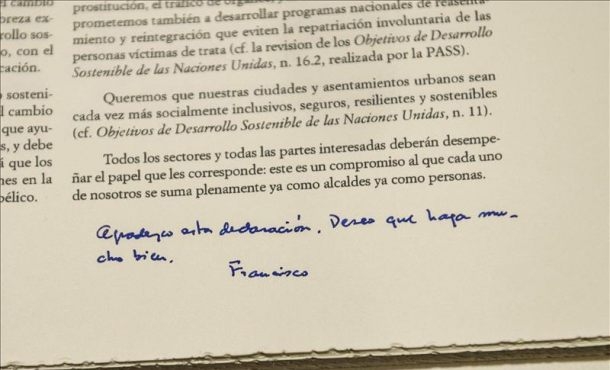 l cambio
breza ex-
rollo sos-
o, con el
cación.
sosteni-
l cambio
que ayu-
s, y debe
á que los
nes en la
bélico.
prostitución, el tráfico de
prometemos también a desarrollar programas nacionales de reasenta-
miento y reintegración que eviten la repatriación involuntaria de las
personas víctimas de trata (cf. la revision de los Objetivos de Desarrollo
Sostenible de las Naciones Unidas, n. 16.2, realizada por la PASS).
Queremos que nuestras ciudades y asentamientos urbanos sean
cada vez más socialmente inclusivos, seguros, resilientes y sostenibles
(cf. Objetivos de Desarrollo Sostenible de las Naciones Unidas, n. 11).
Todos los sectores y todas las partes interesadas deberán desempe-
ñar el papel que les corresponde: este es un compromiso al que cada uno
de nosotros se suma plenamente ya como alcaldes ya como personas.
Agradezco esta declaración. Deseo que haga mu-
cho bien.
Francisco